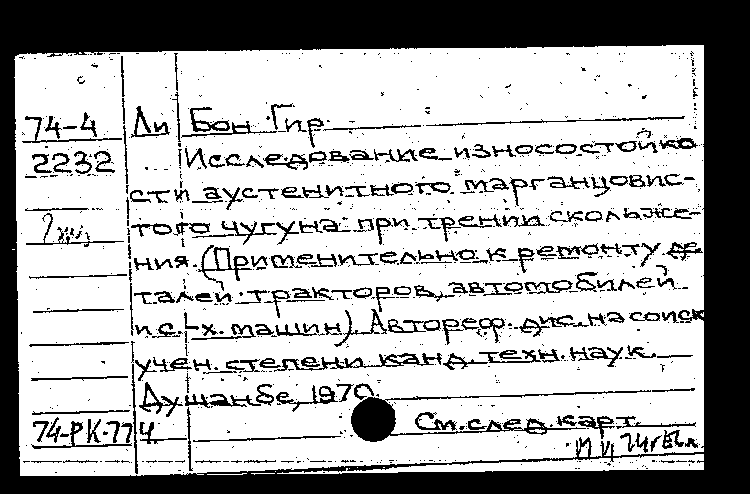 74-4 Ли Бон Гир
2232 Исследование износостойко
сти аустенитного марганцовис-
того чугуна при трении скольже-
ния. (Применительно к ремонту де
талей тракторов, автомобилей
и с.-х. машин). Автореф. дис. на соиск
учен. степени канд. техн. наук.
Душанбе, 1970
74-РК-774. См. след. карт.